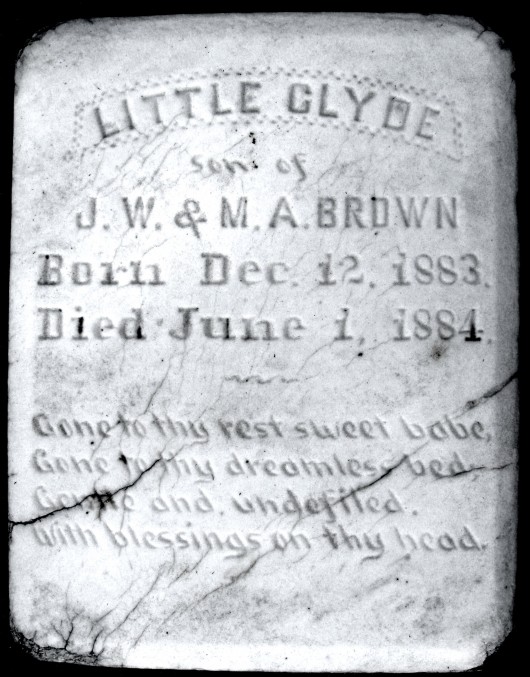 LITTLE CLYDE
son of
J. W. & M. A. BROWN
Born Dec. 12, 1883.
Died June 1, 1884.
Gone to thy rest sweet babe,
Gone to thy dreamless bed,
Gentle and, undefiled.
With blessings on thy head.